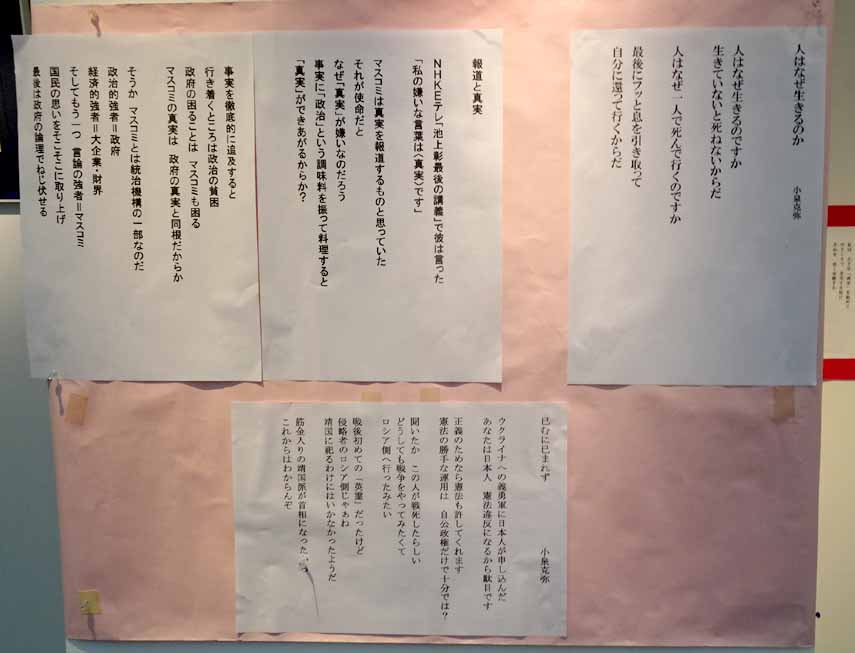 人はなぜ生きるのか
小泉克弥
人はなぜ生きるのですか
生きていないと死ねないからだ
人はなぜ一人で死んで行くのですか
最後にフッと息を引き取って
自分に還って行くからだ
報道と真実
NHKEテレ「池上彰最後の講義」で彼は言った
「私の嫌いな言葉は〈真実〉です」
マスコミは真実を報道するものと思っていた
それが使命だと
なぜ「真実」が嫌いなのだろう
事実に「政治」という調味料を振って料理すると
「真実」ができあがるからか?
事実を徹底的に追及すると
行き着くところは政治の貧困
政府の困ることは マスコミも困る
マスコミの真実は 政府の真実と同根だからか
そうか マスコミとは統治機構の一部なのだ
政治的強者＝政府
経済的強者＝大企業・財界
そしてもう一つ 言論の強者＝マスコミ
国民の思いをそこそこに取り上げ
最後は政府の論理でねじ伏せる
已むに已まれず
小泉克弥
ウクライナへの義勇軍に日本人が申し込んだ
あなたは日本人 憲法違反になるから駄目です
正義のためなら憲法も許してくれます
憲法の勝手な運用は 自公政権だけで十分では?
聞いたか この人が戦死したらしい
どうしても戦争をやってみたくて
ロシア側へ行ったみたい
戦後初めての「英霊」だったけど
侵略者のロシア側じゃぁね
靖国に祀るわけにはいかなかったようだ
筋金入りの靖国派が首相になった
これからはわからんぞ